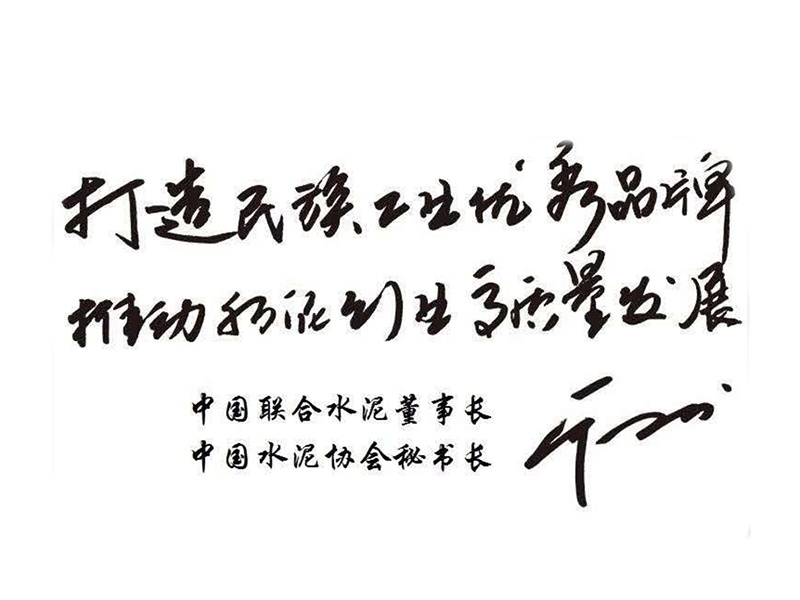 打造民族工业优秀品牌
推动业高质量发展
中国联合水泥董事长
中国水泥协会秘书长